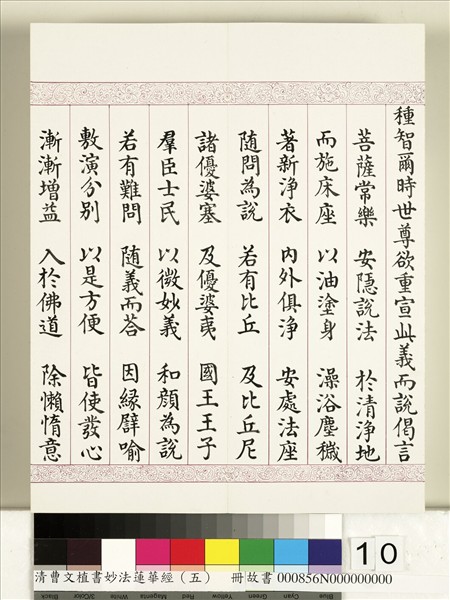 種智爾時世尊欲重宣此義而說偈言
菩薩常樂 安隱說法 於清淨地
而施床座 以油塗身 澡浴塵穢
著新淨衣 內外俱淨 安處法座
随問為說 若有比丘 及比丘尼
諸優婆塞 及優婆夷 國王王子
羣臣士民 以微妙義 和顏為說
若有難問 隨義而荅 因緣譬喻
敷演分別 以是方便 皆使發心
漸漸增益 入於佛道 除懶惰意
10
清曹文植書妙法蓮華經（五） 冊故書 000856N000000000
Black 3/Color White Magenta Red Yellow Green Cyan Blue